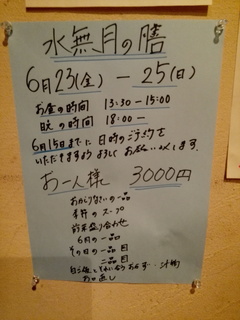 水無月の膳
6月23(金) — 25(日)
お昼の時間 13:30 - 15:00
晩の時間 18:00 —
6月15日までに日時のご予約を
いただきますようよろしくお願いします。
お一人様 3000円
おかえりなさいの一品
季節のスープ
前菜盛り合わせ
6月の一品
その日の一品目
二品目